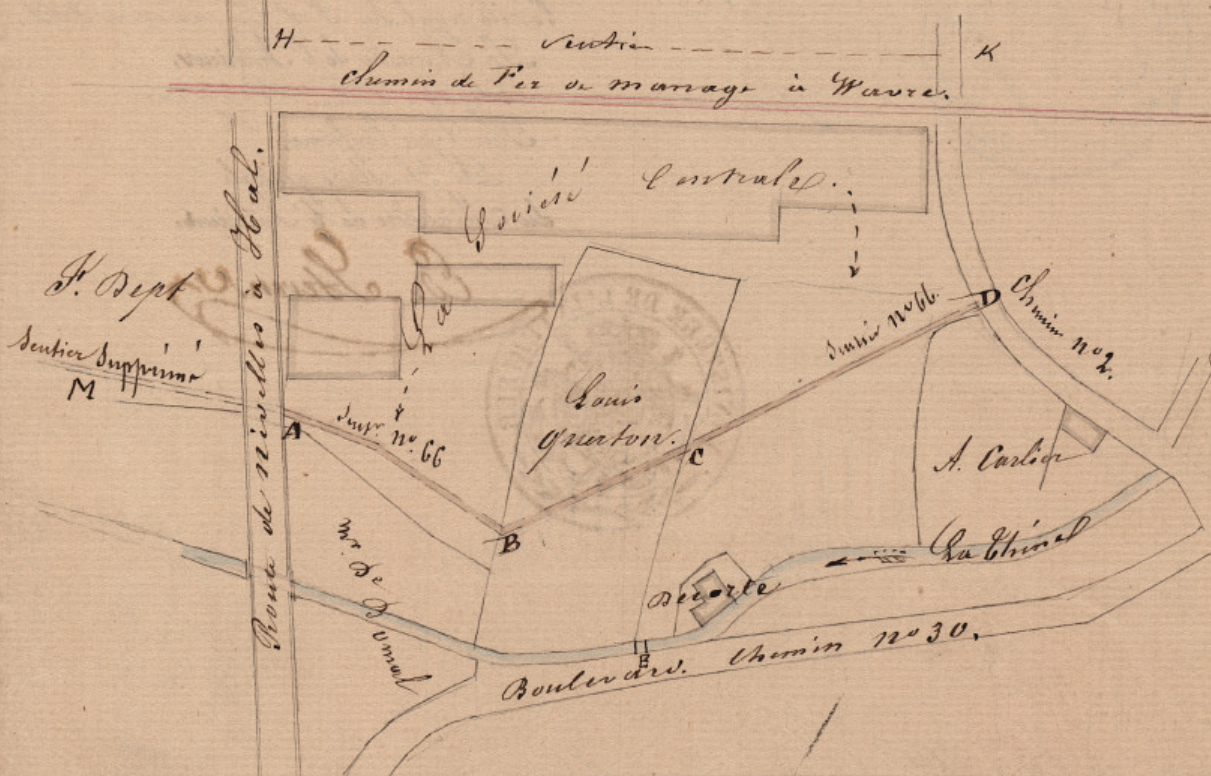 H sentier K
Chemin de Fer de manage à Wavre.
Route de nivelles à Hal.
Société Centrale.
La
F. Dept
Sentier Supprimé
M
A
Sent.r n.o 66
B
Louis
Querton.
C
Sentier n.o 66.
D
Chemin n.o 2.
A. Carlier
La Thines
Decorte
E
Boulevard. Chemin n.o 30.